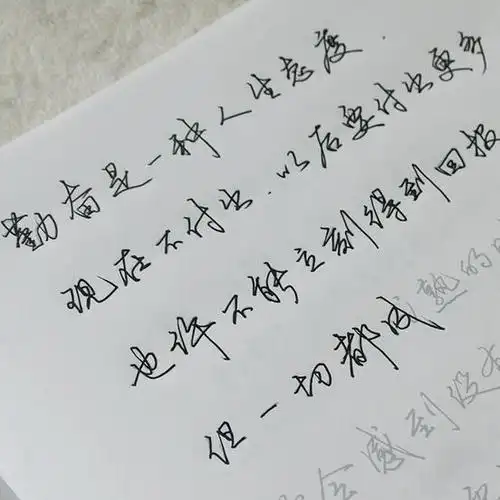 勤奋是一种人生态度.
现在不付出.以后要付出更多
也许不能立刻得到回报
但一切都成熟的
会感到没有